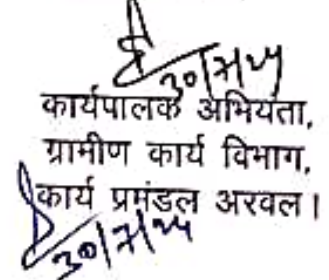 30/7/25
कार्यपालक अभियंता,
ग्रामीण कार्य विभाग,
कार्य प्रमंडल अरवल।
30/7/25